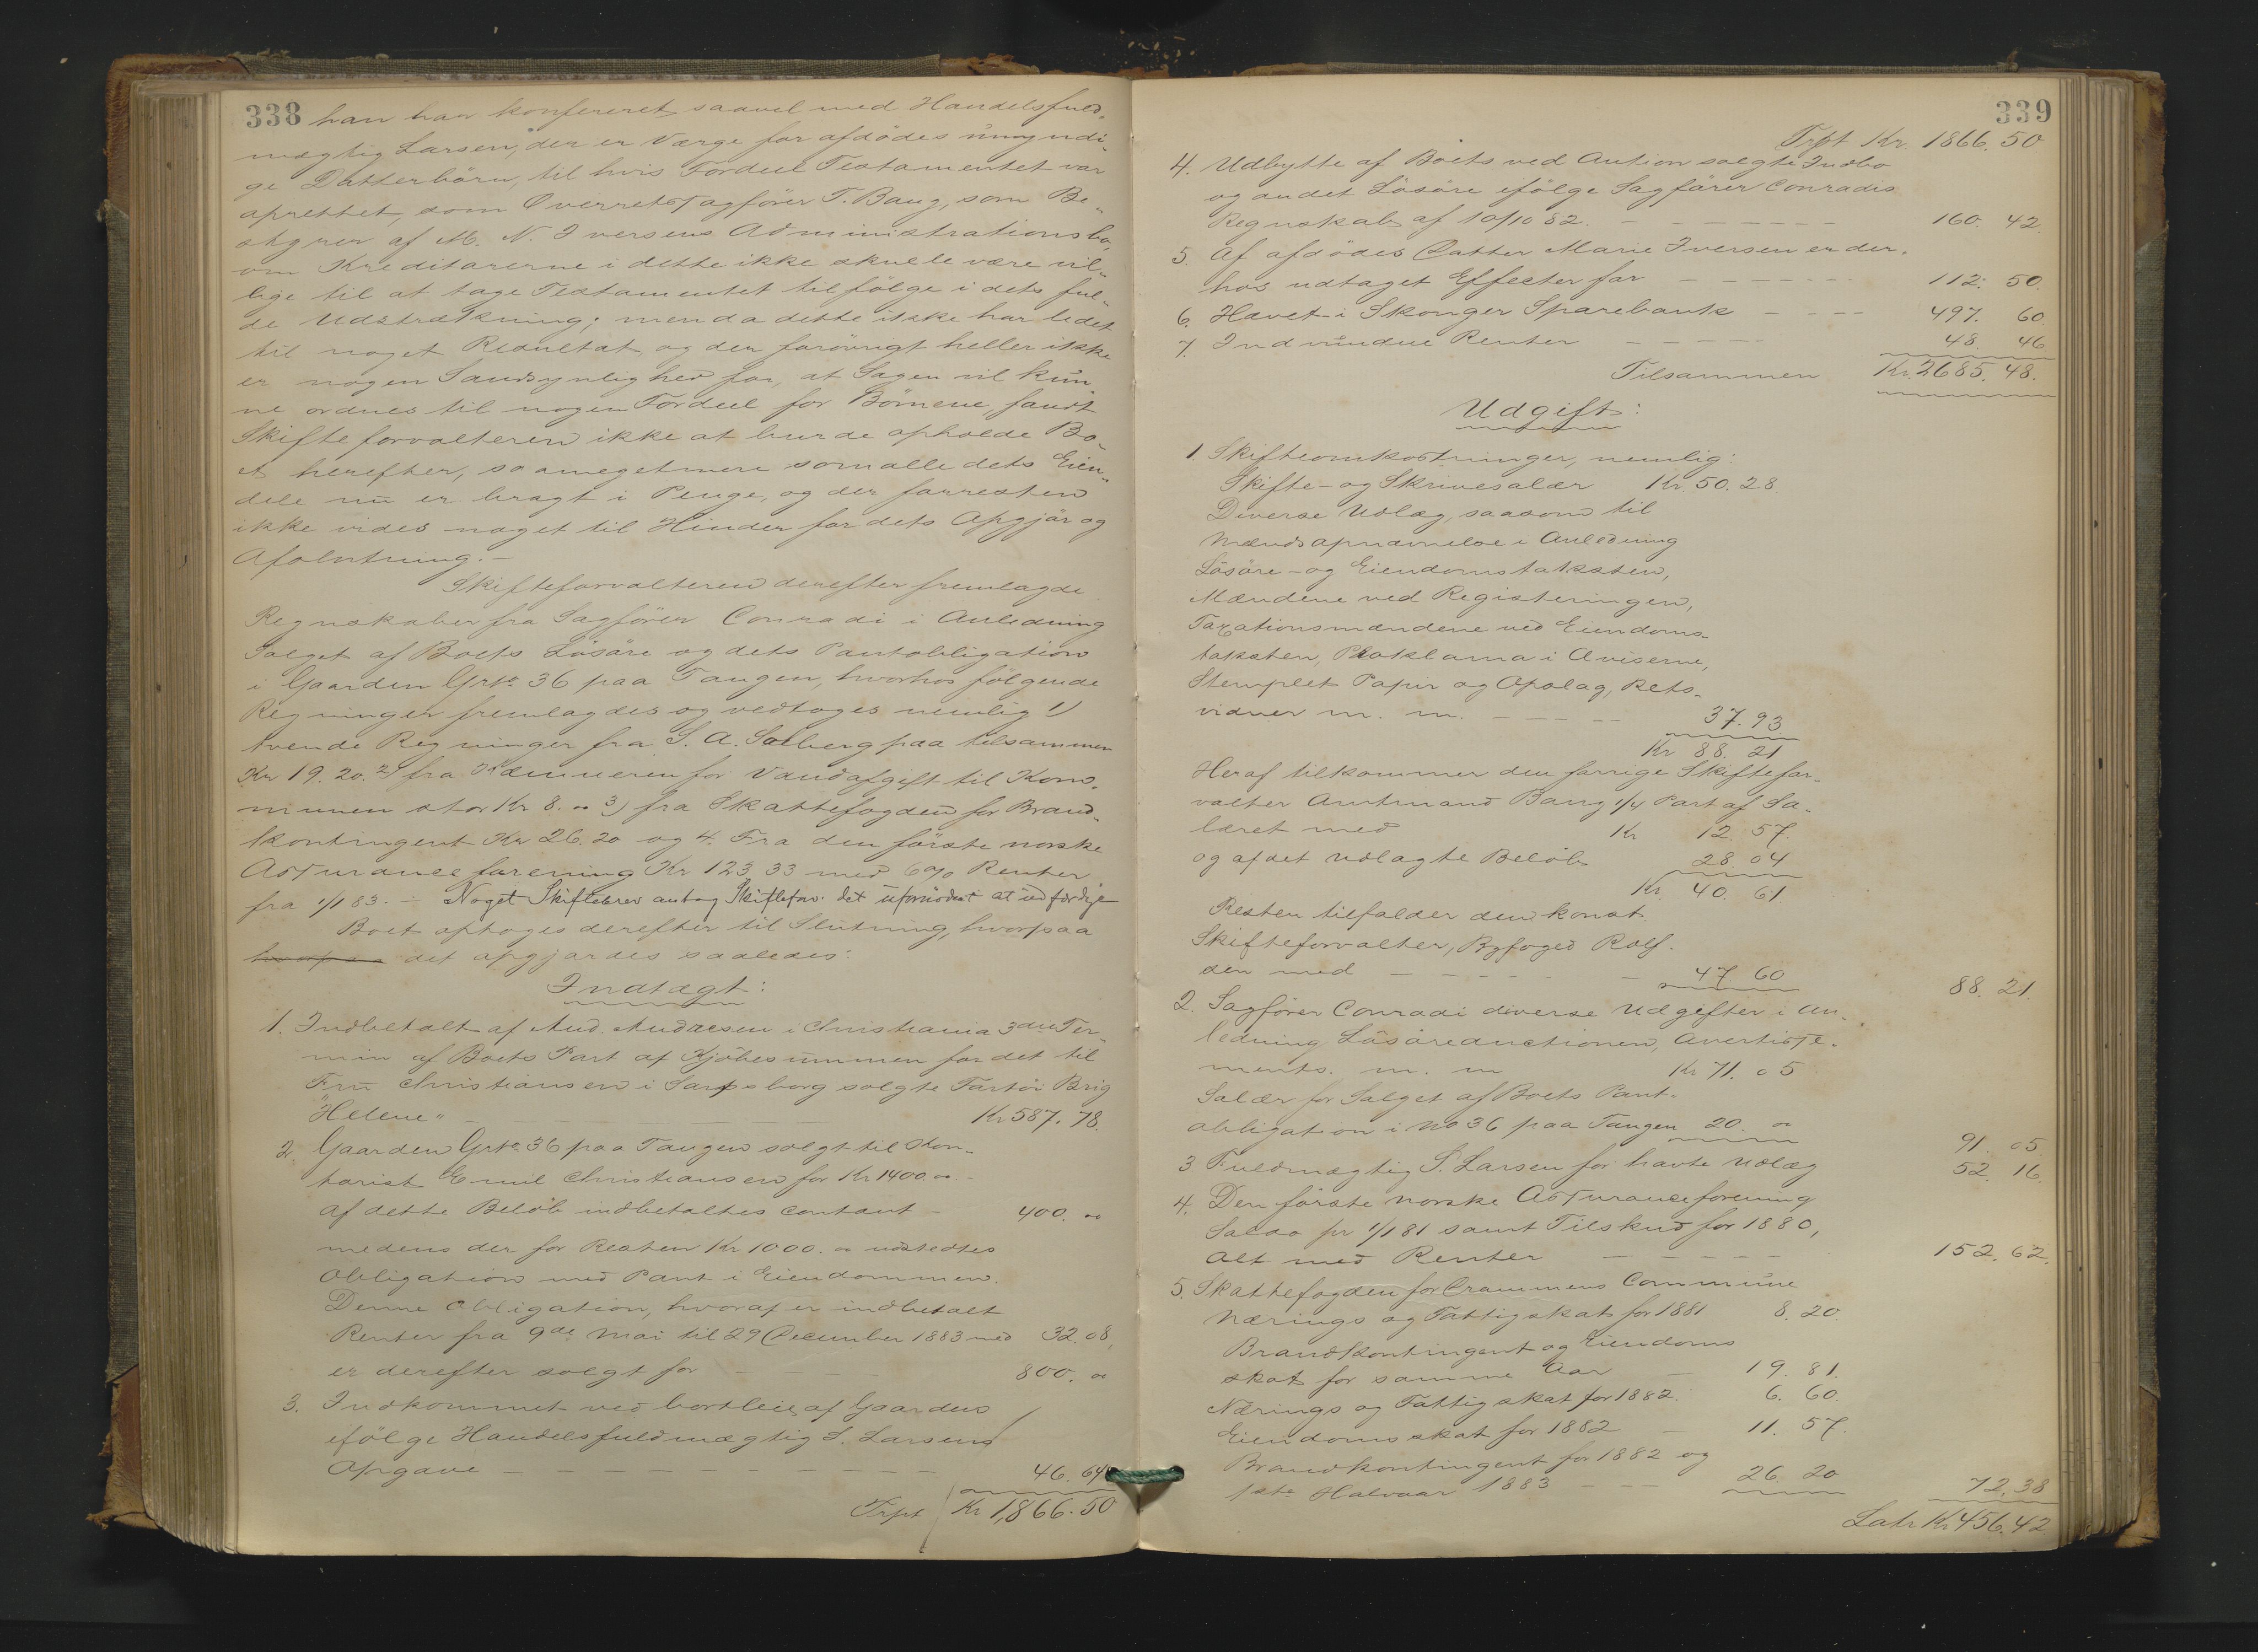 338
han har konfereret saavel med Handelsfuld-
mægtig Larsen, der er Værge for afdödes umyndi-
ge Datterbörn, til hvis Fordeel Testamentet var
oprettet, som Overretssagförer T. Bang, som Be-
styrer af M. N. Iversens Administrationsbo,
om Kreditorerne i dette ikke skulle være vil-
lige til at tage Testamentet tilfölge i dets ful-
de Udstrækning; men da dette ikke har ledet
til noget Resultat og der forövrigt heller ikke
er nogen Sandsynlighed for, at Sagen vil kun-
ne ordnes til nogen Fordeel for Börnene, fandt
Skifteforvalteren ikke at burde opholde Bo-
et herefter, saameget mere som alle dets Eien-
dele nu er bragt i Penge, og der forresten
ikke vides noget til Hinder for dets Opgjör og
Afslutning.-
Skifteforvalteren derefter fremlagde
Regnskaber fra Sagförer Conradi i Anledning
Salget af Boets Lösöre og dets Pantobligation
i Gaarden Grto. 36 paa Tangen, hvorhos fölgende
Regninger fremlagdes og vedtoges nemlig 1)
tvende Regninger fra S. A. Solberg paa tilsammen
Kr 19. 20. 2) fra Kæmneren for Vandafgift til Kom-
munen stor Kr 8. 00 3) fra Skattefogden for Brand-
kontingent Kr 26. 20 og 4. Fra den förste norske
Assuranceforening Kr 123 33 med 6% Renter
fra 1/1 83. - Noget Skiftebrev antog Skiftefov. det ufornödent at udfærdige
Boet optoges derefter til Slutning, hvorpaa
hvorpaa det opgjordes saaledes:
Indtægt:
1. Indbetalt af And. Andresen i Christiania 3die Ter-
min af Boets Part af Kjöbesummen for det til
Fru Christiansen i Sarpsborg solgte Fartöi Brig
"Helene" - - - - - Kr 587. 78.
2. Gaarden Grto. 36 paa Tangen solgt til Kon-
torist Emil Christiansen for Kr 1400. 00. -
af dette Belöb indbetaltes contant - 400. 00
medens der for Resten Kr 1000. 00 udstedtes
Obligation med Pant i Eiendommen.
Denne Obligation, hvoraf er indbetalt
Renter fra 9de Mai til 29 December 1883 med 32. 08,
er derefter solgt for - - - 800. 00
3. Indkommet ved bortleie af Gaarden
ifölge Handelsfuldmægtig S. Larsens
Opgave - - - - - - - - - - 46. 64
Trpt Kr 1,866. 50
339
Trpt Kr. 1866. 50
4. Udbytte af Boets ved Auktion solgte Indbo
og andet Lösöre ifölge Sagförer Conradis
Regnskab af 10/10 82. - - - - - - 160. 42.
5. Af afdödes Datter Marie Iversen er der-
hos udtaget Effecter for - - - - - 112. 50.
6. Hævet i Skoger Sparebank - - - 497. 60
7. Indvundne Renter - - - - - 48. 46
Tilsammen Kr. 2685. 48.
Udgift:
1. Skifteomkostninger, nemlig:
Skifte- og Skrivesalær Kr. 50. 28
Diverse Udlæg, saasom til
Mændsopnævnelse i Anledning
Lösöre- og Eiendomstaksten,
Mændene ved Registeringen,
Taxationsmændene ved Eiendoms-
taksten, Proklama i Aviserne,
Stemplet Papir og Opslag, Rets-
vidner m. m. - - - - 37. 93
Kr 88. 21
Heraf tilkommer den forrige Skiftefor-
valter Amtmand Bang 1/4 Part af Sa-
læret med Kr 12. 57.
og af det udlagte Belöb 28. 04
Kr. 40. 61.
Resten tilfalder den konst.
Skifteforvalter, Byfoged Rolf-
sen med - - - - - 47 60 88. 21.
2. Sagförer Conradi diverse Udgifter i An-
ledning Lösöreauctionen, Avertisse-
ments. m. m Kr 71. 05
Salær for Salget af Boets Pant-
obligation i No 36 paa Tangen 20. 00 91. 05.
3 Fuldmægtig S. Larsen for havte Udlæg 52. 16.
4. Den förste norske Assuranceforening
Saldo pr 1/1 81 samt Tilskud for 1880,
alt med Renter - - - - - 152. 62.
5. Skattefogden for Drammens Commune
Nærings og Fattigskat for 1881 8. 20.
Brandkontingent og Eiendoms
skat for samme Aar - 19. 81.
Nærings og Fattigskat for 1882. 6. 60.
Eiendomsskat for 1882 - 11. 57.
Brandkontingent for 1882 og
1ste Halvaar 1883 - - - 26 20 72. 38
Latr Kr 456. 42